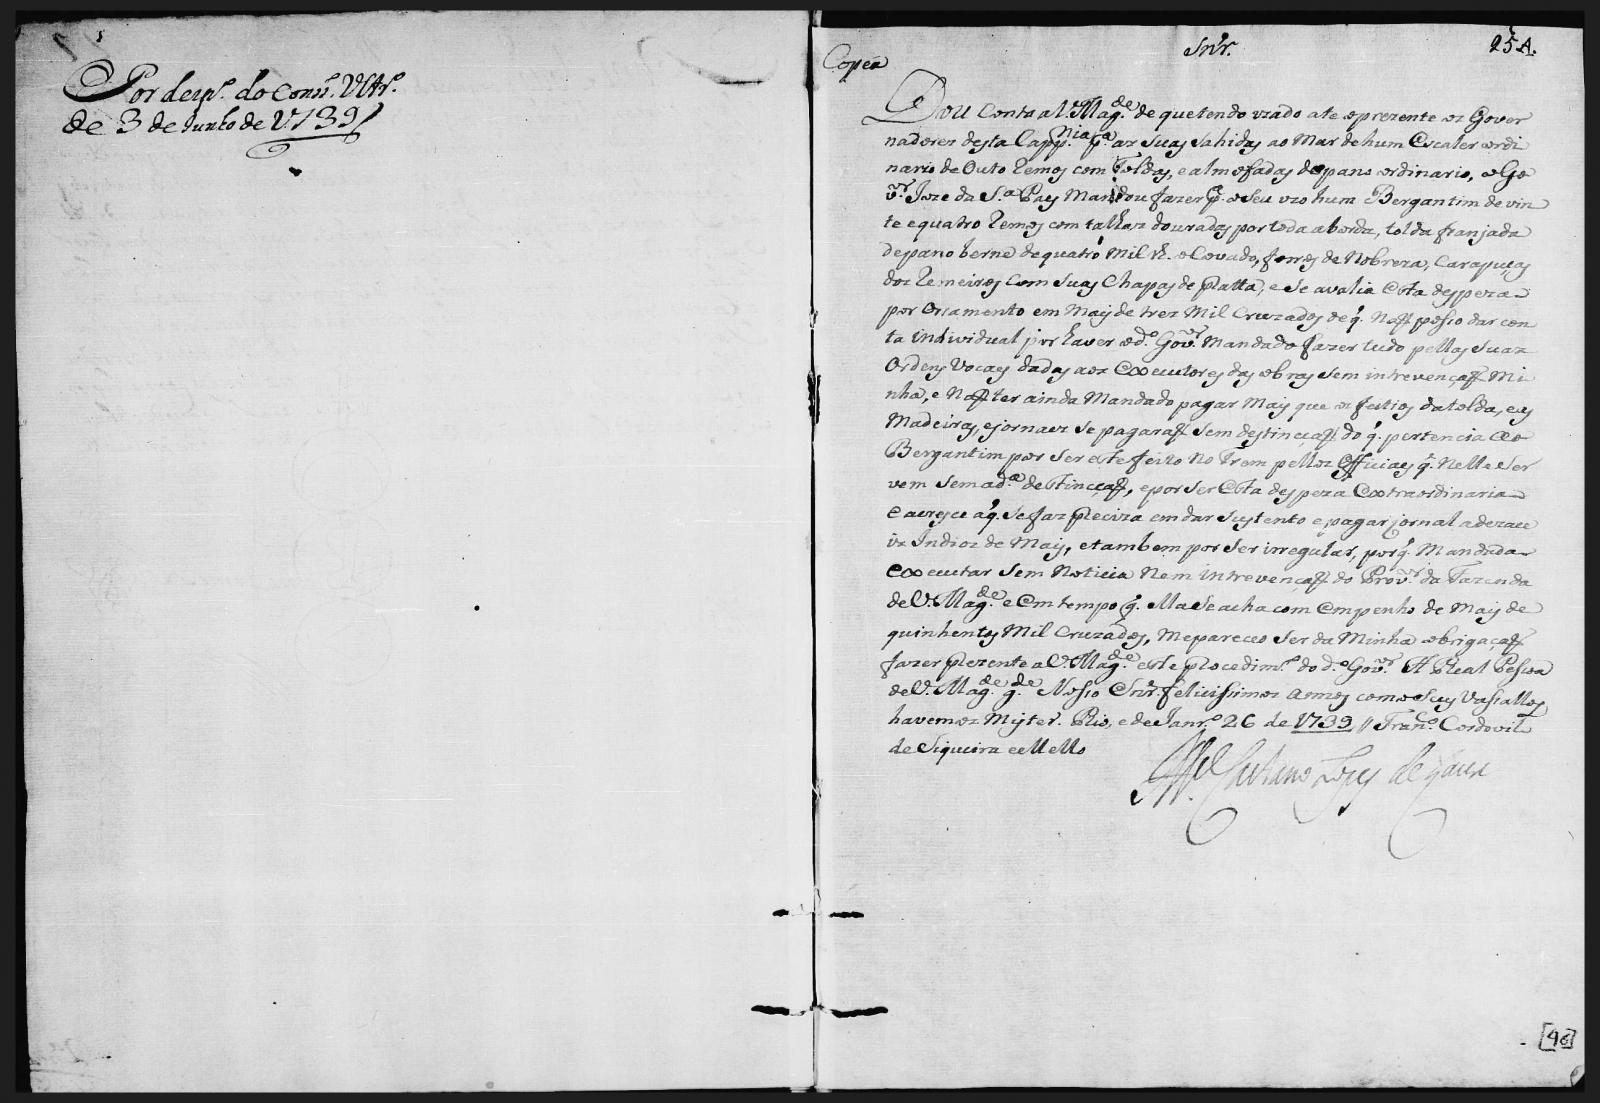 Por desp.º do Cons.º Ultr.º
de 3 de Junho de 1739
Copea
Snr.
25 A.
Dou Conta a V. Mag.de de que tendo uzado ate o prezente os Gover
nadores desta Capp.nia p.a as suas sahidas ao Mar de hum Escaler ordi
nario de Outo Remos com Toldas, e almofadas de pano ordinario, o Go
v.or Joze da S.a Paes Mandou fazer p.a o seu uzo hum Bergantim de vin
te e quatro Remos com talhas douradas por toda a borda, tolda franjada
de pano berne de quatro Mil r.s o Covado, forros de Nobreza, Carapuças
dos Remeiros com suas Chapas de Platta, e Se avalia Esta despeza
por Orsamento em Mais de tres Mil Cruzados de q. Naõ posso dar con
ta individual por haver o d.o Gov.or Mandado fazer tudo pellas suas
Ordens Vocaes dadas aos Executores das obras sem intrevençaõ Mi
nha, e Naõ ter ainda Mandado pagar Mais que os feitios da tolda, e as
Madeiras, e jornaes se pagaraõ sem destincçaõ do q. pertencia ao
Bergantim por Ser este feito No Trem pellos Officiaes q. Nelle Ser
vem sem a d.a destincçaõ, e por Ser Esta despeza Extraordinaria
e acresce a q. se faz Preciza em dar sustento e pagar jornal a dezace
is Indios de Mais, e tambem por ser irregular, por q. Mandada
Executar sem Noticia Nem intrevençaõ do Prov.or da Fazenda
de V. Mag.de e Em tempo q. Ella Se acha com Empenho de Mais de
quinhentos Mil Cruzados, Me pareceo Ser da Minha obrigaçaõ
fazer Prezente a V. Mag.de este Procedim.to do d.o Gov.or A Real Pessoa
de V. Mag.de g.de Nosso Snr. felicissimos annos como os Seus Vassallos
havemos Mister. Rio, e de Janr.o 26 de 1739 // Fran.co Cordovil
de Siqueira e Mello
M.el Caetano Lopes de
[46]